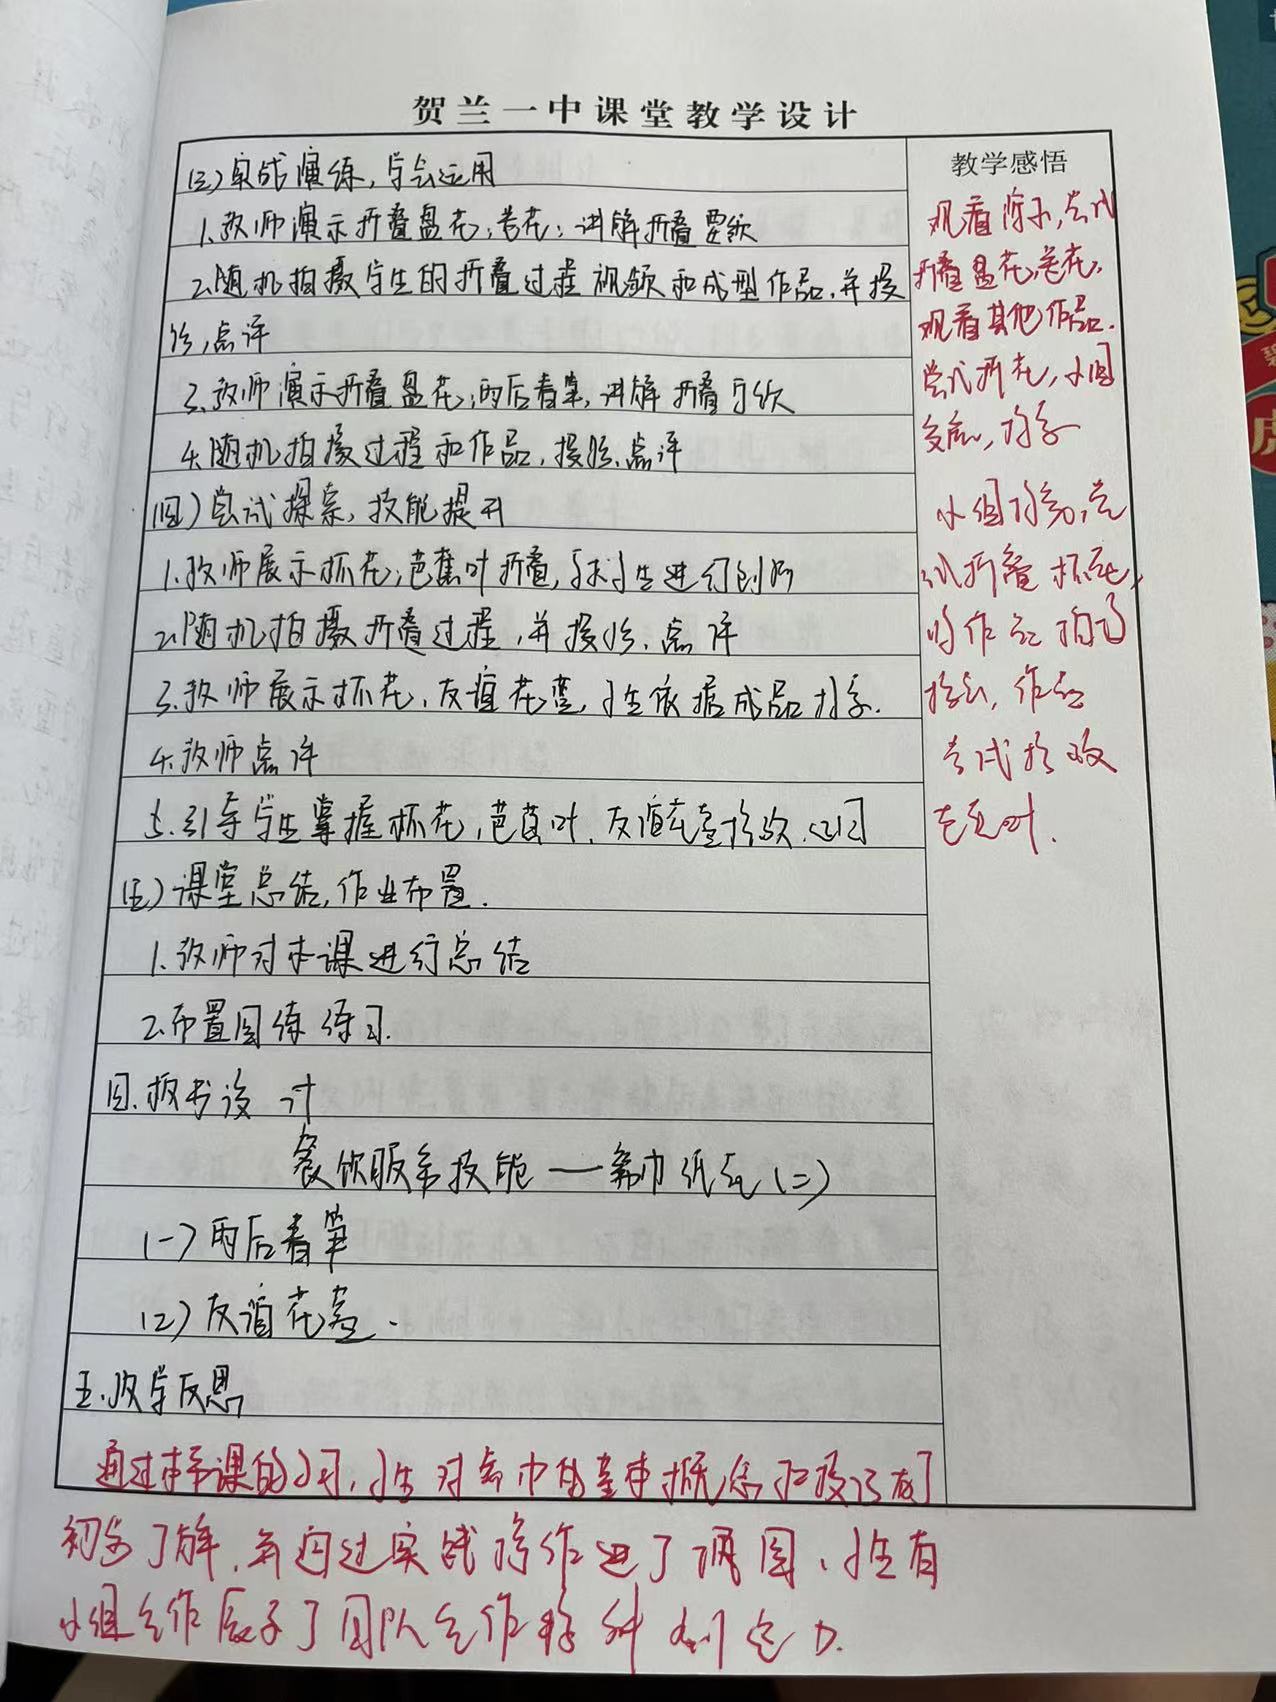 贺兰一中课堂教学设计
教学感悟
(三)实战演练,学会运用
1.教师演示折叠盘花:卷花;讲解折叠要领
2.随机拍摄学生的折叠过程视频和成型作品,并投
影,点评
3.教师演示折叠盘花:雨后春笋,讲解折叠习领
4.随机拍摄过程和作品,投影,点评
(四)尝试探索,技能提升
1.教师展示杯花:芭蕉叶折叠,
2.随机拍摄折叠过程,并投影,点评
3.教师展示杯花,友谊花篮,学生依据成品探究.
4.教师点评
5.引导学生掌握杯花,芭蕉叶,友谊花篮
(五)课堂总结,作业布置.
1.教师对本课进行总结
2.布置回练练习.
四.板书设计
餐饮服务技能——餐巾纸花(二)
(一)雨后春笋
(二)友谊花篮.
五.教学反思
通过本节课的学习,学生对餐巾的基本概念和技巧有了
初步了解,并通过实战操作进了巩固,学生有
小组合作展示了团队合作精神和创造力.
观看演示,尝试
折叠盘花,卷花,
观看其他作品.
尝试折花,小组
交流,探究
小组探究,尝
试折叠杯花,
将作品拍了